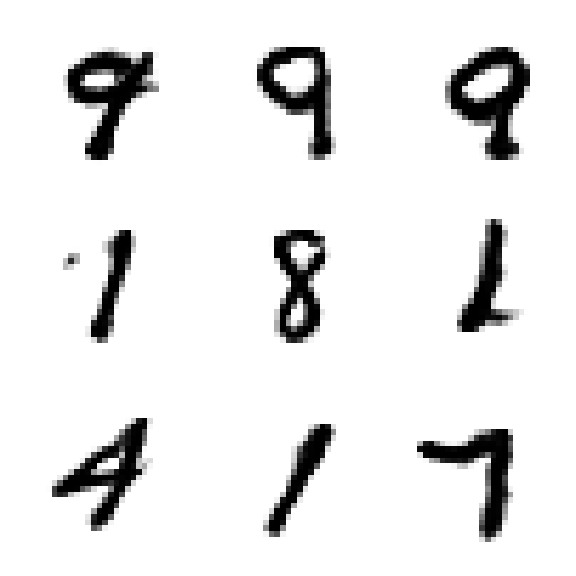 9 9 9
1 8 1
4 1 7